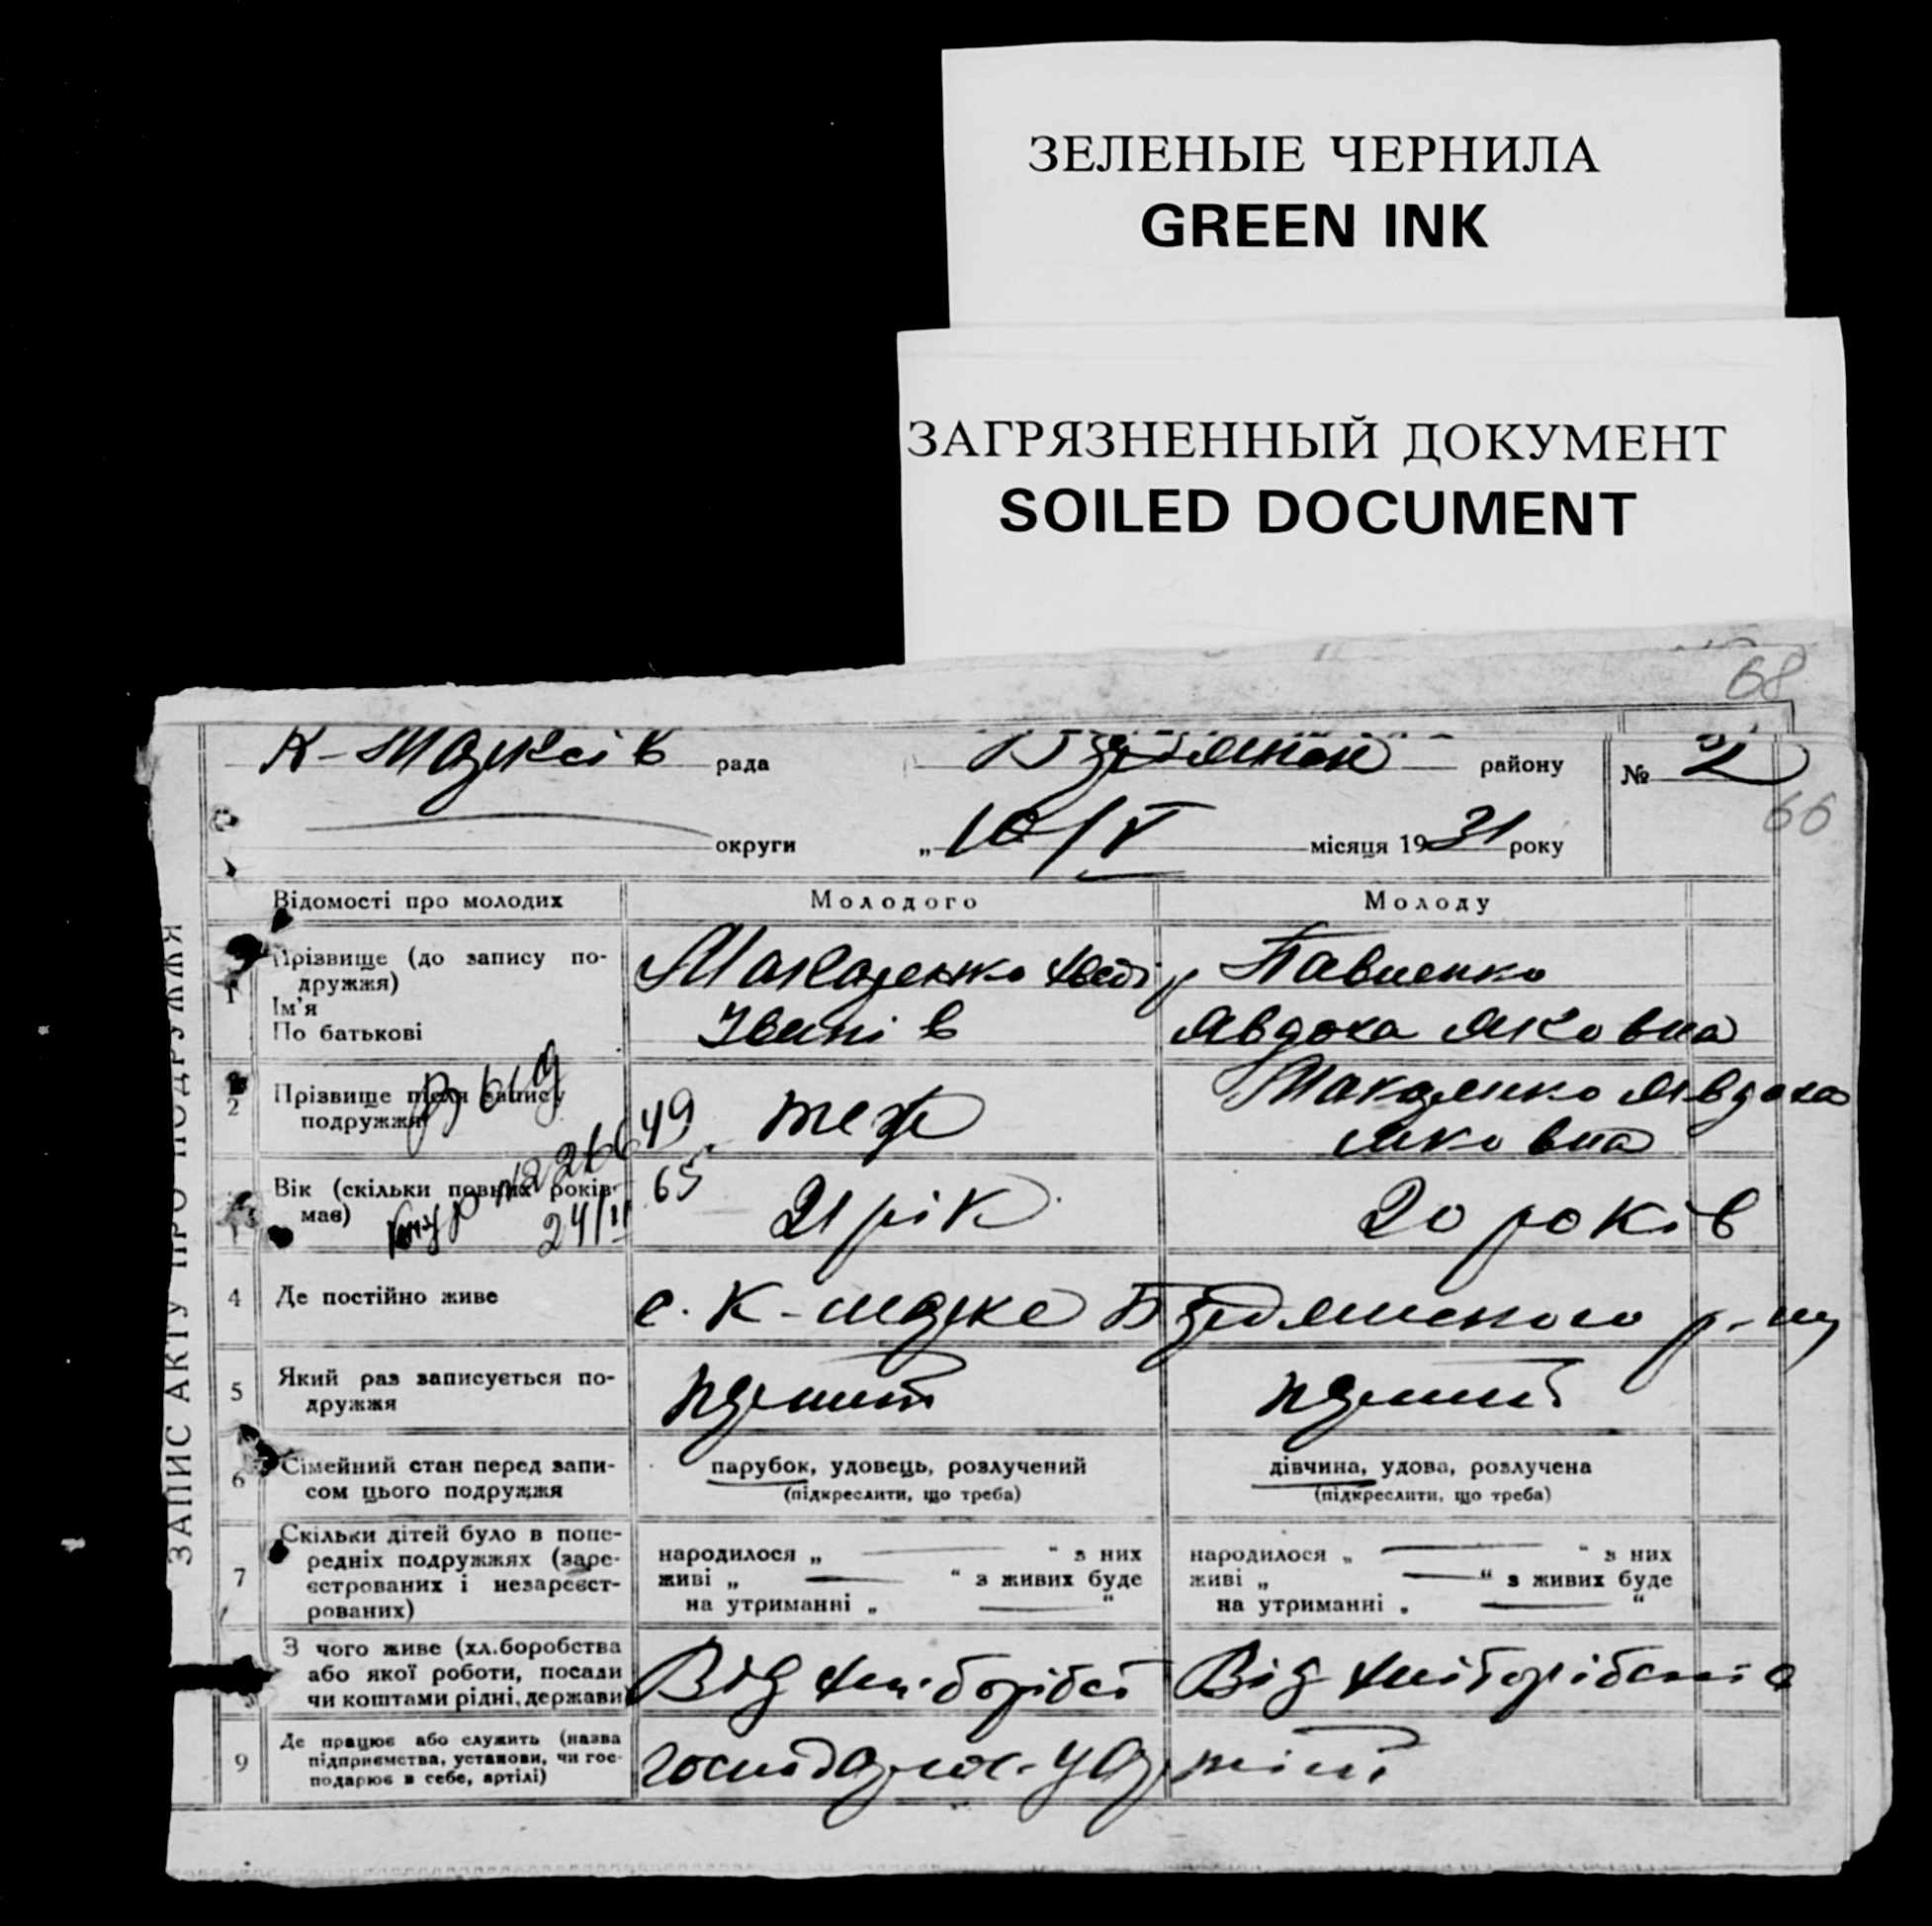 ЗЕЛЕНЫЕ ЧЕРНИЛА
GREEN INK
ЗАГРЯЗНЕННЫЙ ДОКУМЕНТ
SOILED DOCUMENT
68
рада району № 2
66
округи „10/V місяця 1931 року
ЗАПИС АКТУ ПРО ПОДРУЖЖЯ
Відомості про молодих Молодого Молоду
1 Прізвище (до запису по-
дружжя)
Ім'я
По батькові
Макаренко Павленко
Іванів Явдоха Яковна
2 Прізвище після запису
подружжя
теж Макаренко Явдоха
Яковна
49
№ 266
65
24/II
Вік (скільки повних років
має)
21 рік 20 років
4 Де постійно живе
с. К- р-ну
5 Який раз записується по-
дружжя
6 Сімейний стан перед запи-
сом цього подружжя
парубок, удовець, розлучений
(підкреслити, що треба)
дівчина, удова, розлучена
(підкреслити, що треба)
7 Скільки дітей було в попе-
редніх подружжях (заре-
єстрованих і незареєст-
рованих)
народилося „ — “ з них
живі „ — “ з живих буде
на утриманні „ — “
народилося „ — “ з них
живі „ — “ з живих буде
на утриманні „ — “
З чого живе (хл.боробства
або якої роботи, посади
чи коштами рідні, держави
Від Від
9 Де працює або служить (назва
підприємства, установи, чи гос-
подарює в себе, артілі)